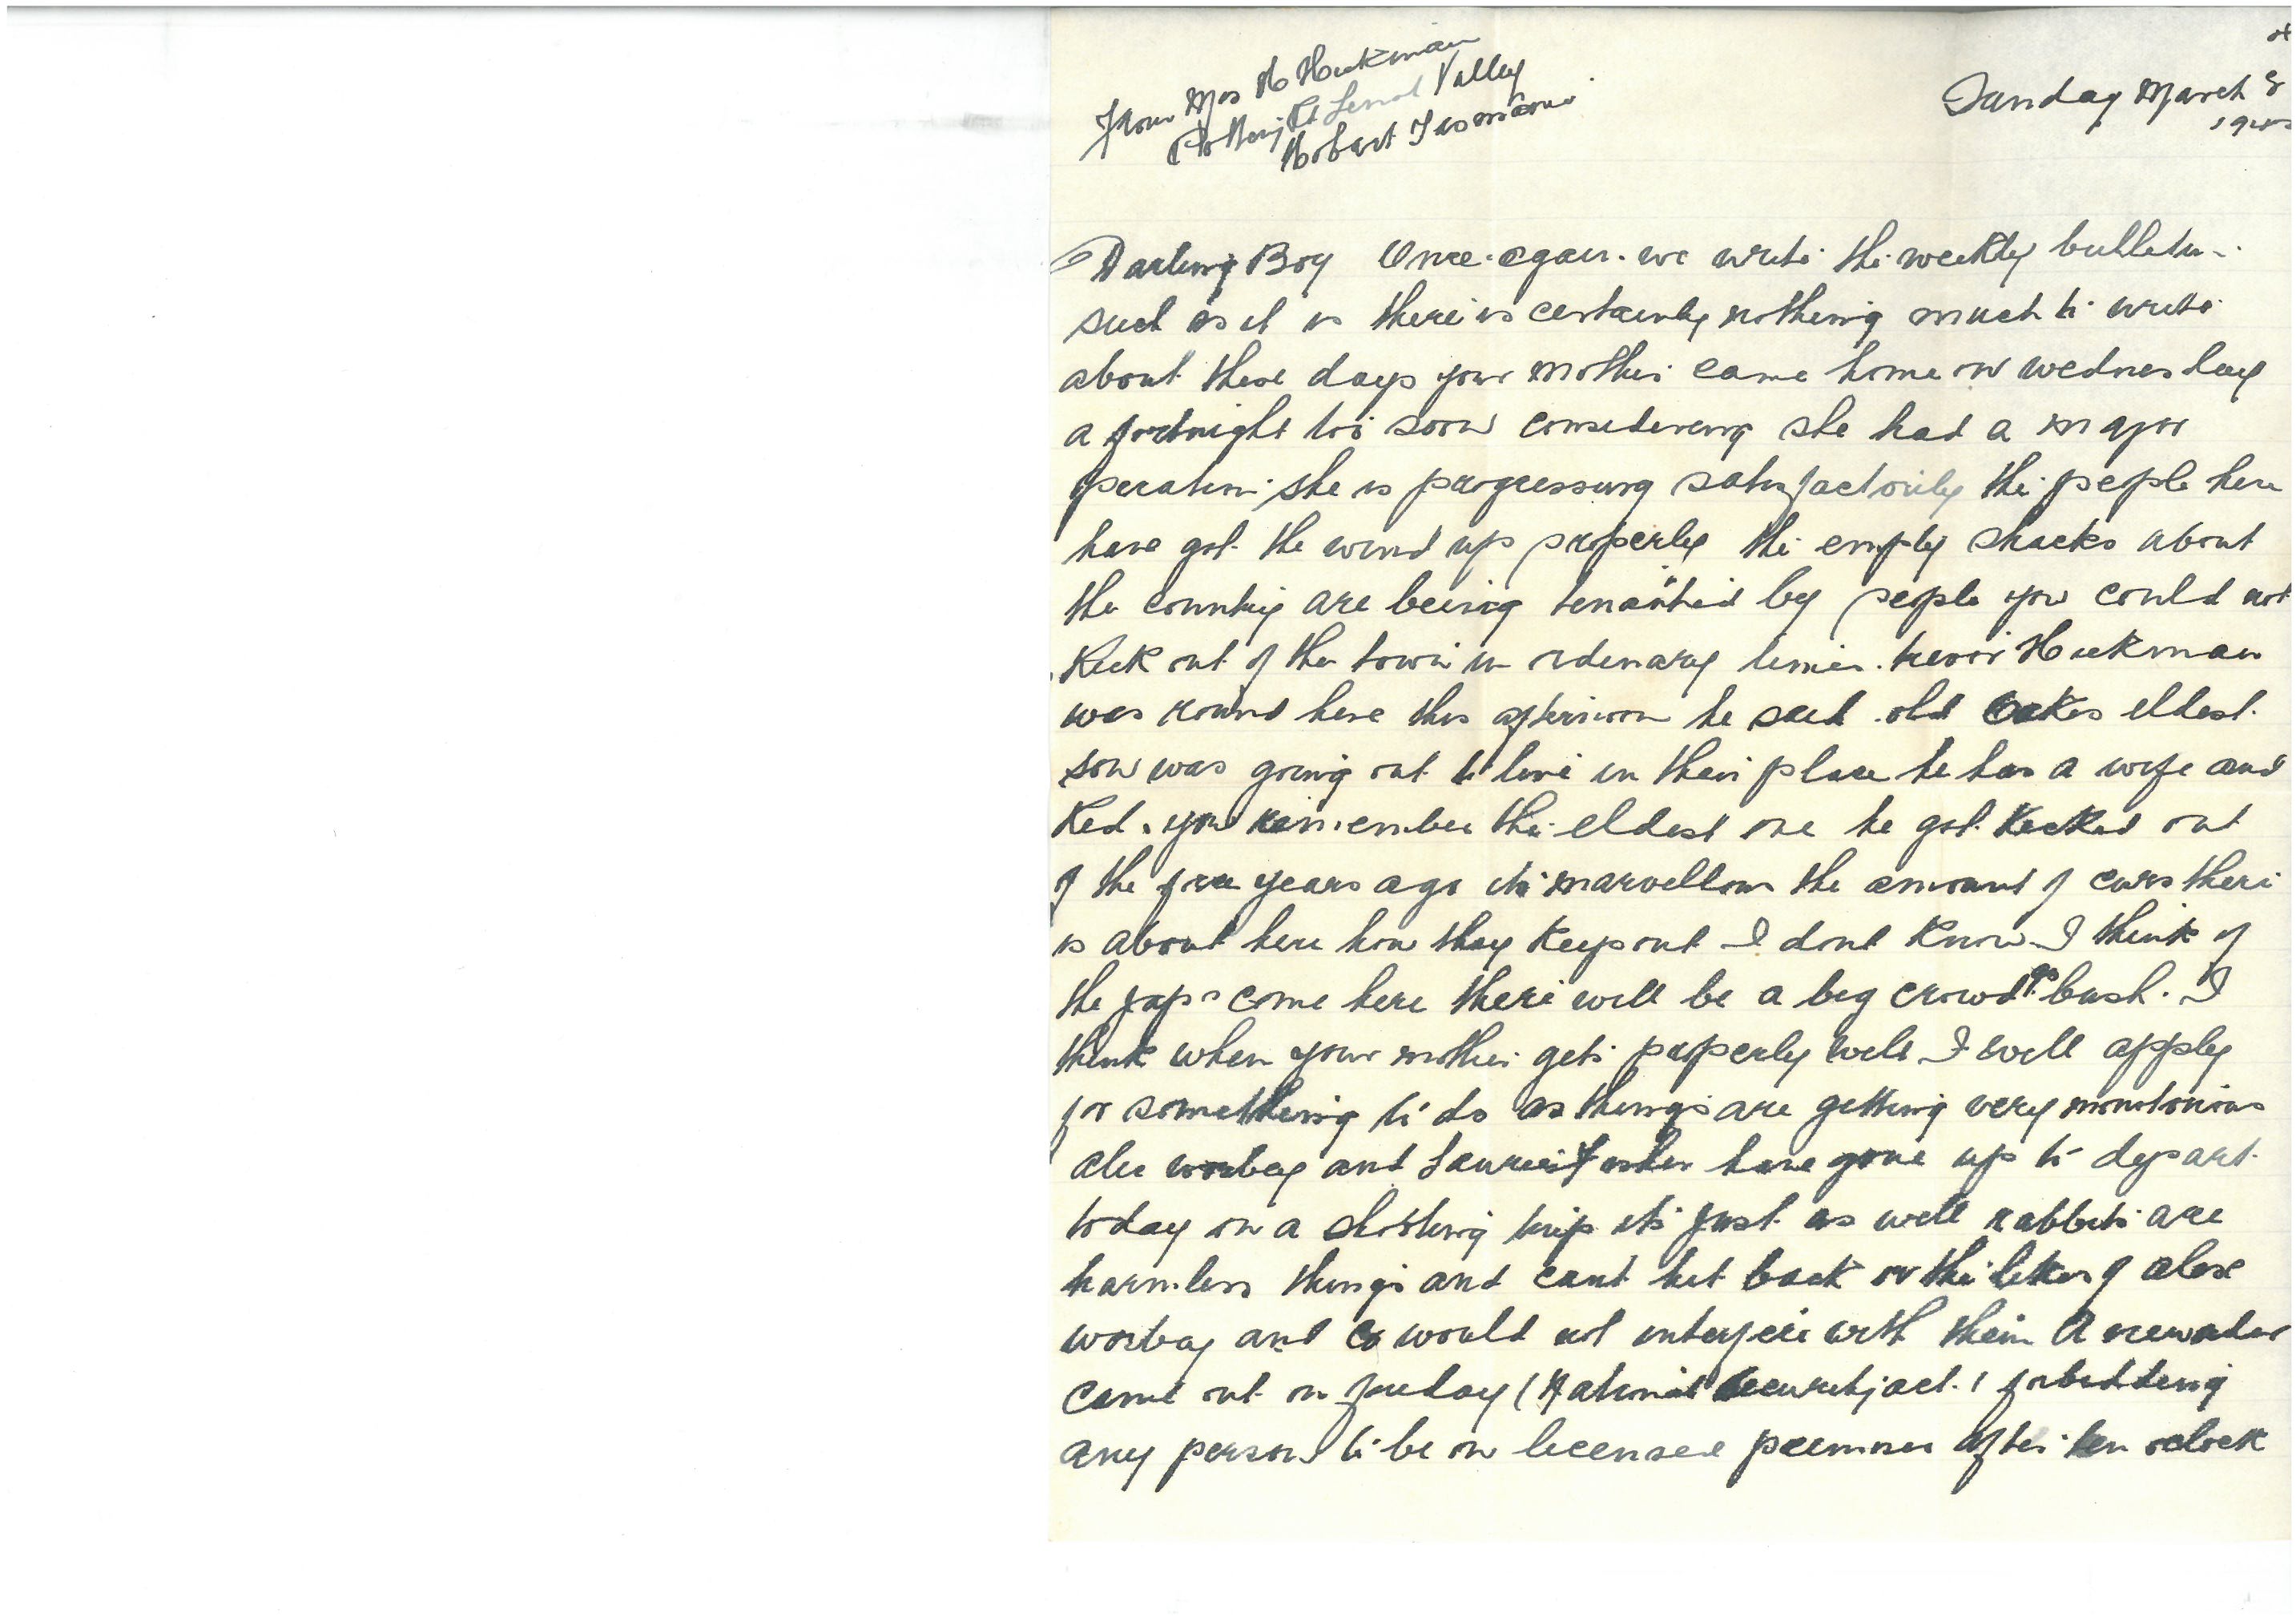 From Mrs H Hickman
Pottery Rd Lenah Valley
Hobart Tasmania
Sunday March 8
Darling Boy Once again we write the weekly bulletin
such as it is there is certainly nothing much to write
about these days your mother came home on wednesday
a fortnight too soon considering she had a major
operation she is progressing satisfactorily the people here
have got the wind up properly the empty shacks about
the country are being tenanted by people you could not
kick out of the town in ordinary times. trevor Hickman
was round here this afternoon he said old Oakes eldest
son was going out to live in their place he has a wife and
kid. you remember the eldest one he got kicked out
of the years ago its marvellous the amount of cars there
is about here how they keep out I dont know I think if
the japs come here there will be a big crowd go bush. I
think when your mother gets properly well I will apply
for something to do as things are getting very monotonous
alec worbey and Laurie Fisher have gone up to
today on a shooting trip its just as well rabbits are
harmless things and cant hit back or the likes of alec
worbey and Co would not interfere with them A new order
came out on friday (National Security act) forbidding
any person to be on licensed premises after ten oclock